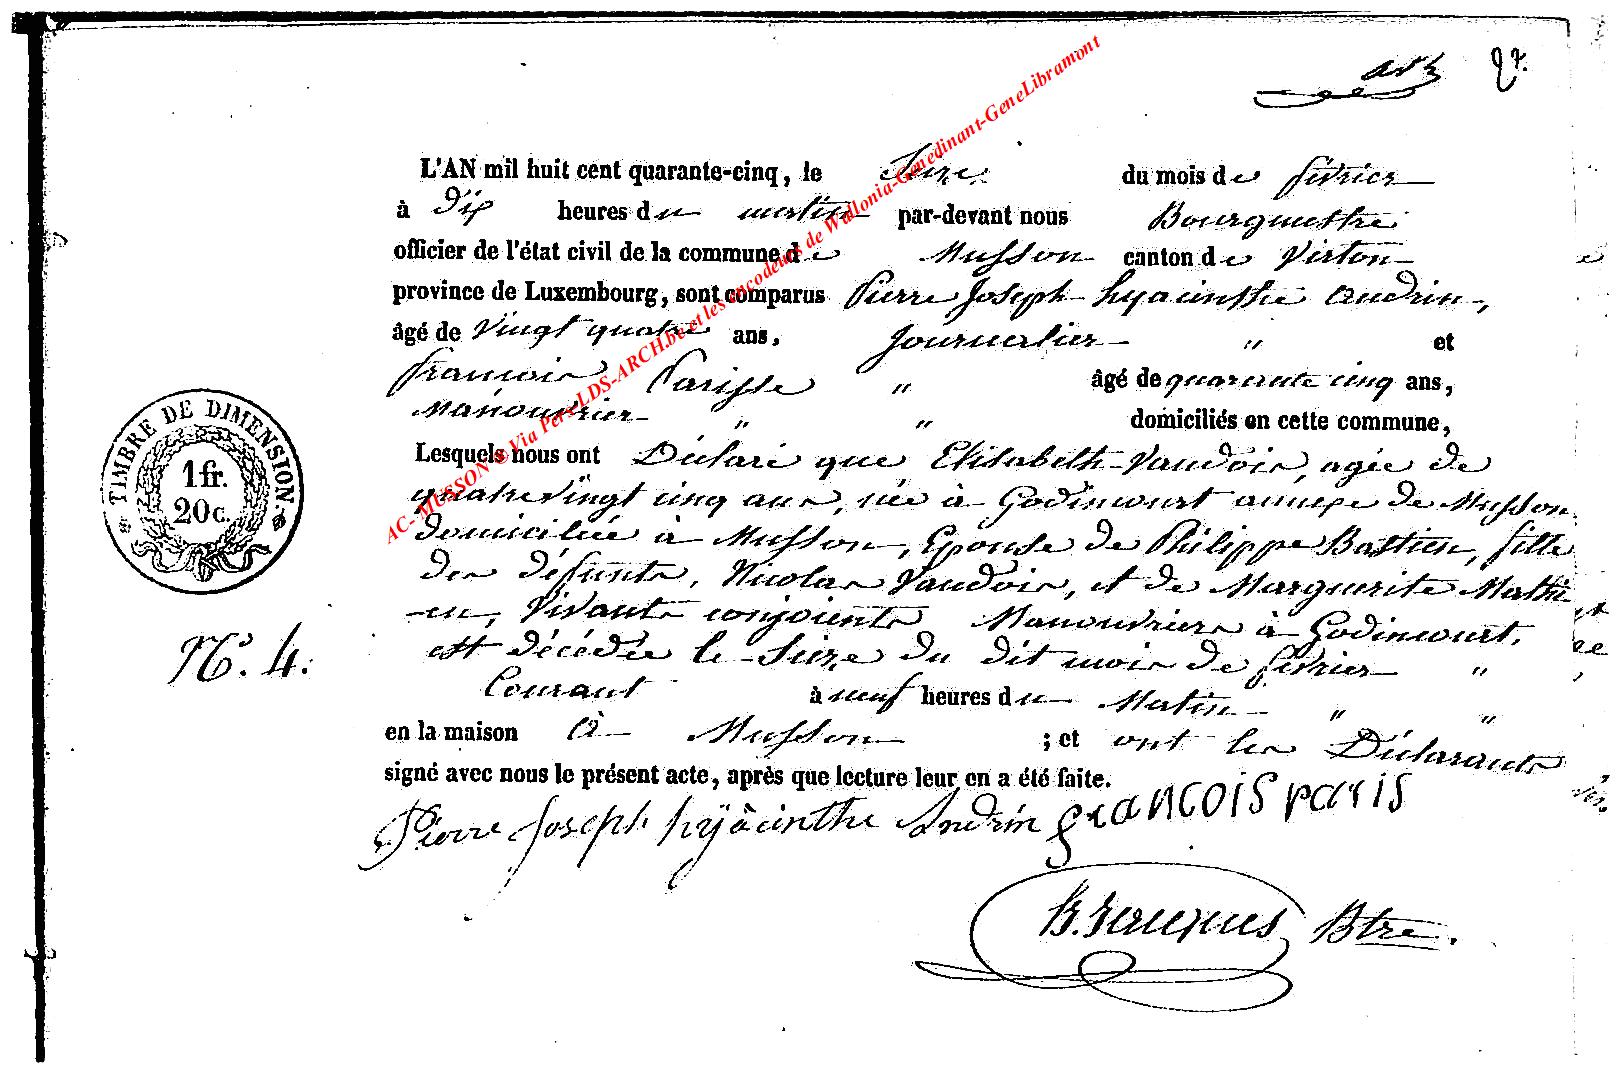 27.
L'AN mil huit cent quarante-cinq, le Seize du mois de février
à Dix heures du matin par-devant nous Bourgmestre
officier de l'état civil de la commune de Musson canton de Virton
province de Luxembourg, sont comparus Pierre Joseph hyacinthe andrin,
âgé de vingt quatre ans, Journalier " et
françois Parisse " âgé de quarante cinq ans,
Manouvrier " " domiciliés en cette commune,
Lesquels nous ont Déclaré que Elisabeth Vaudois, agée de
quatre vingt cinq ans, née à Godincourt annexe de Musson
domiciliée à Musson, Epouse de Philippe Bastien, fille
des défunts, Nicolas Vaudois, et de Marguerite Mathi
-eu, vivants conjoients Manouvriers à Godincourt.
est décédée le Seize du dit mois de février "
Courant à neuf heures du Matin " "
en la maison à Musson ; et ont les Déclarants
signé avec nous le présent acte, après que lecture leur en a été faite.
Pierre Joseph hyàcinthe Andrin françois paris
Jacques Btre.
TIMBRE DE DIMENSION.
1 fr.
20 c.
N°. 4.
AC- MUSSON © Via Pers LDS-ARCH.be et les encodeurs de Wallonia-Genedinant-GeneLibramont